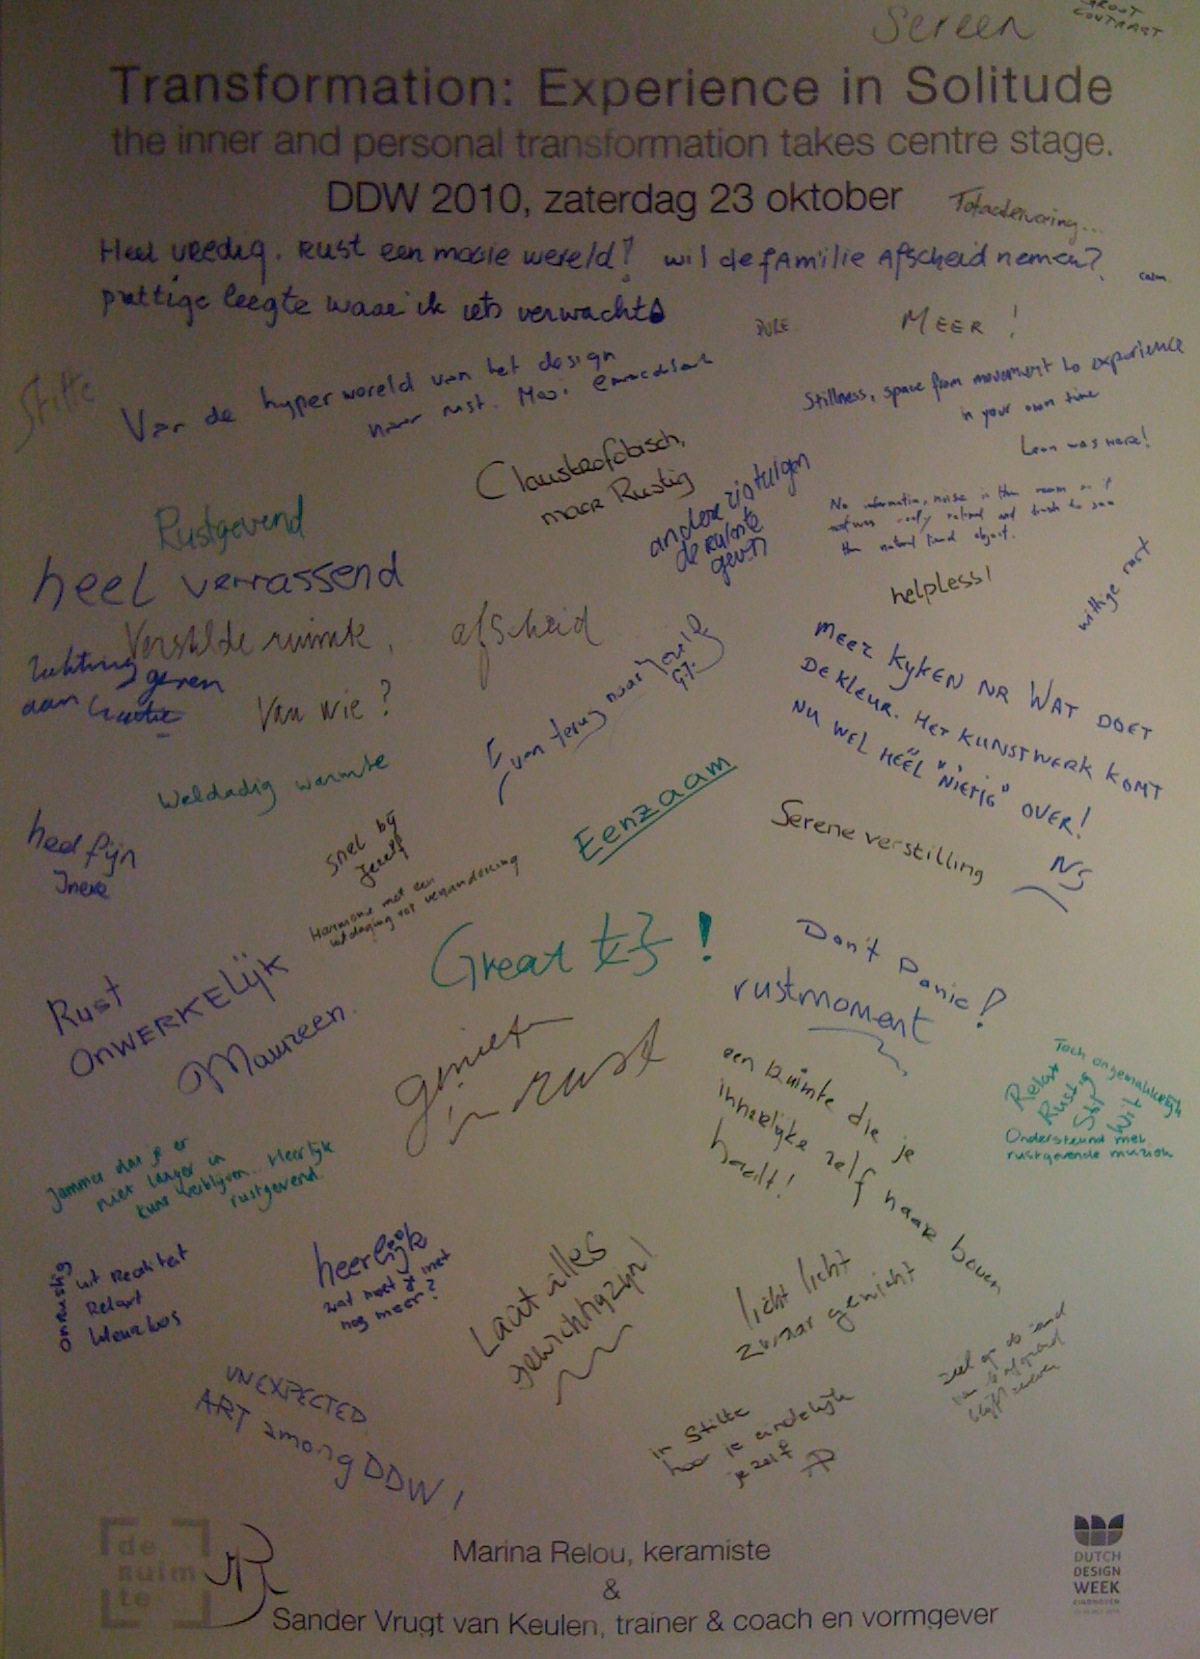 Sereen
GROOT
CONTRAST
Transformation: Experience in Solitude
the inner and personal transformation takes centre stage.
DDW 2010, zaterdag 23 oktober
Totaalervaring...
Heel vredig. Rust een mooie wereld! wil de familie Afscheid nemen?
calm
prettige leegte waar ik iets verwacht
PURE
MEER !
Stilte
Van de hyper wereld van het design
naar rust. Mooi
Stillness, space from movement to experience
in your own time
Leon was here!
Claustrofobisch,
maar Rustig
andere zintuigen
de ruimte
geven
No information, noise in the room
Rustgevend
heel verrassend
helpless!
wittige rust
Verstilde ruimte, afscheid
geven
aan
Van wie ?
Even terug naar jezelf
MEER KYKEN NR WAT DOET
DE KLEUR. HET KUNSTWERK KOMT
NU WEL HEËL "NIETIG" OVER!
NS
Weldadig warmte
Eenzaam
Serene verstilling
heel fijn
Ineke
snel bij
jezelf
Harmonie met een
uitdaging tot verandering
Great 好 !
Don't Panic!
rustmoment
Rust
ONWERKELIJK
Maureen.
geniet
in rust
een Ruimte die je
innerlijke zelf naar boven
haalt!
Toch ongemakkelijk
Relaxt
Rustig
Stil
Wit
Ondersteund met
rustgevende muziek
Jammer dat je er
niet langer in
kunt verblijven... Heerlijk
rustgevend
Onrustig
uit Realiteit
Relaxt
kleurloos
heerlijk
wat moet je met
nog meer?
Laat alles
gewichtig zijn!
licht licht
zwaar gewicht
UNEXPECTED
ART among DDW!
in stilte
hoor je eindelijk
jezelf
de
Ruim
te
Marina Relou, keramiste
&
Sander Vrugt van Keulen, trainer & coach en vormgever
DUTCH
DESIGN
WEEK
EINDHOVEN